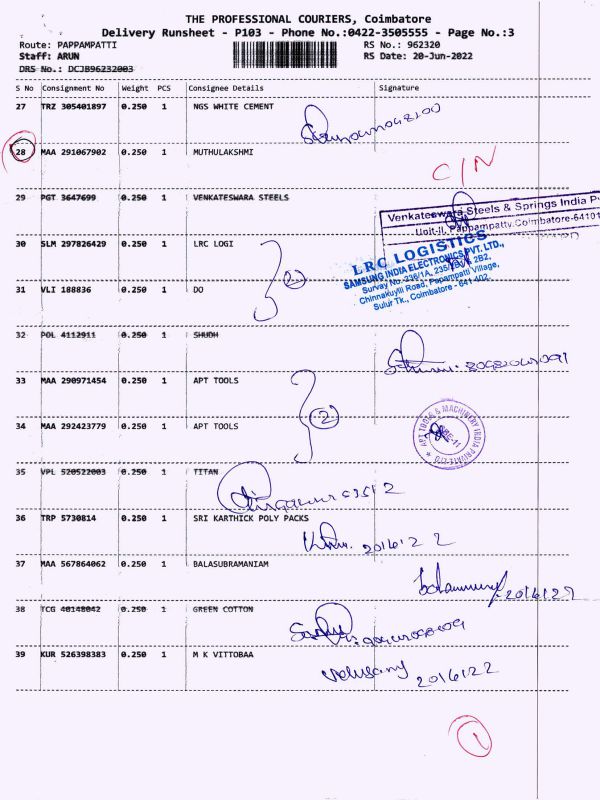 THE PROFESSIONAL COURIERS, Coimbatore
Delivery Runsheet - P103 - Phone No.:0422-3505555 - Page No.:3
Route: PAPPAMPATTI RS No.: 962320
Staff: ARUN RS Date: 20-Jun-2022
DRS No.: DCJB96232003
S No Consignment No Weight PCS Consignee Details Signature
27 TRZ 305401897 0.250 1 NGS WHITE CEMENT
28 MAA 291067902 0.250 1 MUTHULAKSHMI
C/N
29 PGT 3647699 0.250 1 VENKATESWARA STEELS
Venkateswara Steels & Springs India
Unit-II, Pappampatty, Coimbatore-64101
30 SLM 297826429 0.250 1 LRC LOGI
2
LRC LOGISTICS
SAMSUNG INDIA ELECTRONICS PVT. LTD.,
Survay No. 236/1A, 2B2,
Chinnakuyili Road, Papampatti Village,
Sulur Tk., Coimbatore - 641 402.
31 VLI 188836 0.250 1 DO
32 POL 4112911 0.250 1 SHUDH
33 MAA 290971454 0.250 1 APT TOOLS
2
34 MAA 292423779 0.250 1 APT TOOLS
APT TOOLS & MACHINERY INDIA PRIVATE LTD
35 VPL 520522003 0.250 1 TITAN
36 TRP 5730814 0.250 1 SRI KARTHICK POLY PACKS
20/6/22
37 MAA 567864062 0.250 1 BALASUBRAMANIAM
20/6/22
38 TCG 40148042 0.250 1 GREEN COTTON
39 KUR 526398383 0.250 1 M K VITTOBAA
20/6/22
1